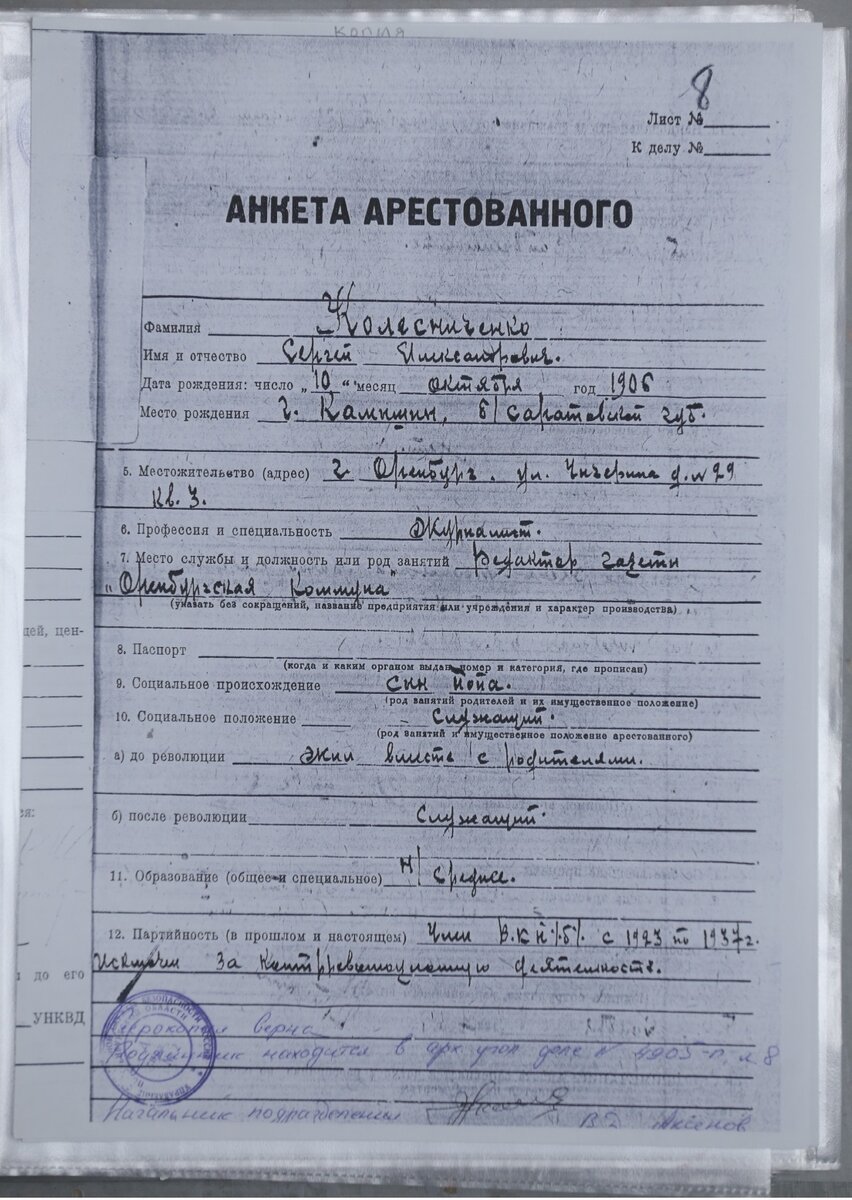 КОПИЯ
8
Лист №
К делу №
АНКЕТА АРЕСТОВАННОГО
Фамилия Колесниченко
Имя и отчество Сергей Александрович.
Дата рождения: число „10“ месяц октября год 1906
Место рождения г. Камышин, б/Саратовской губ.
5. Местожительство (адрес) г. Оренбург. ул. Чичерина д. № 29
кв. 3.
6. Профессия и специальность Журналист.
7. Место службы и должность или род занятий Редактор газеты
„Оренбургская Коммуна“
(указать без сокращений, название предприятия или учреждения и характер производства)
щей, цен-
8. Паспорт
(когда и каким органом выдан, номер и категория, где прописан)
9. Социальное происхождение сын попа.
(род занятий родителей и их имущественное положение)
10. Социальное положение Служащий.
(род занятий и имущественное положение арестованного)
а) до революции жил вместе с родителями.
б) после революции Служащий.
11. Образование (общее и специальное) н/среднее.
12. Партийность (в прошлом и настоящем) Член В.К.П./б/. с 1923 по 1937 г.
исключен за контрреволюционную деятельность.
до его
УНКВД
Ксерокопия верна
Подлинник находится в арх. угол. деле № 4905-п, л. 8
Начальник подразделения В.Д. Аксенов